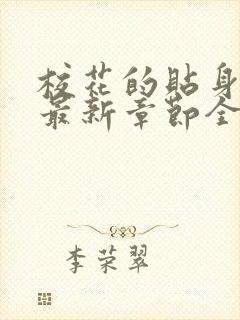 校花的贴身
最新章节全
李荣翠